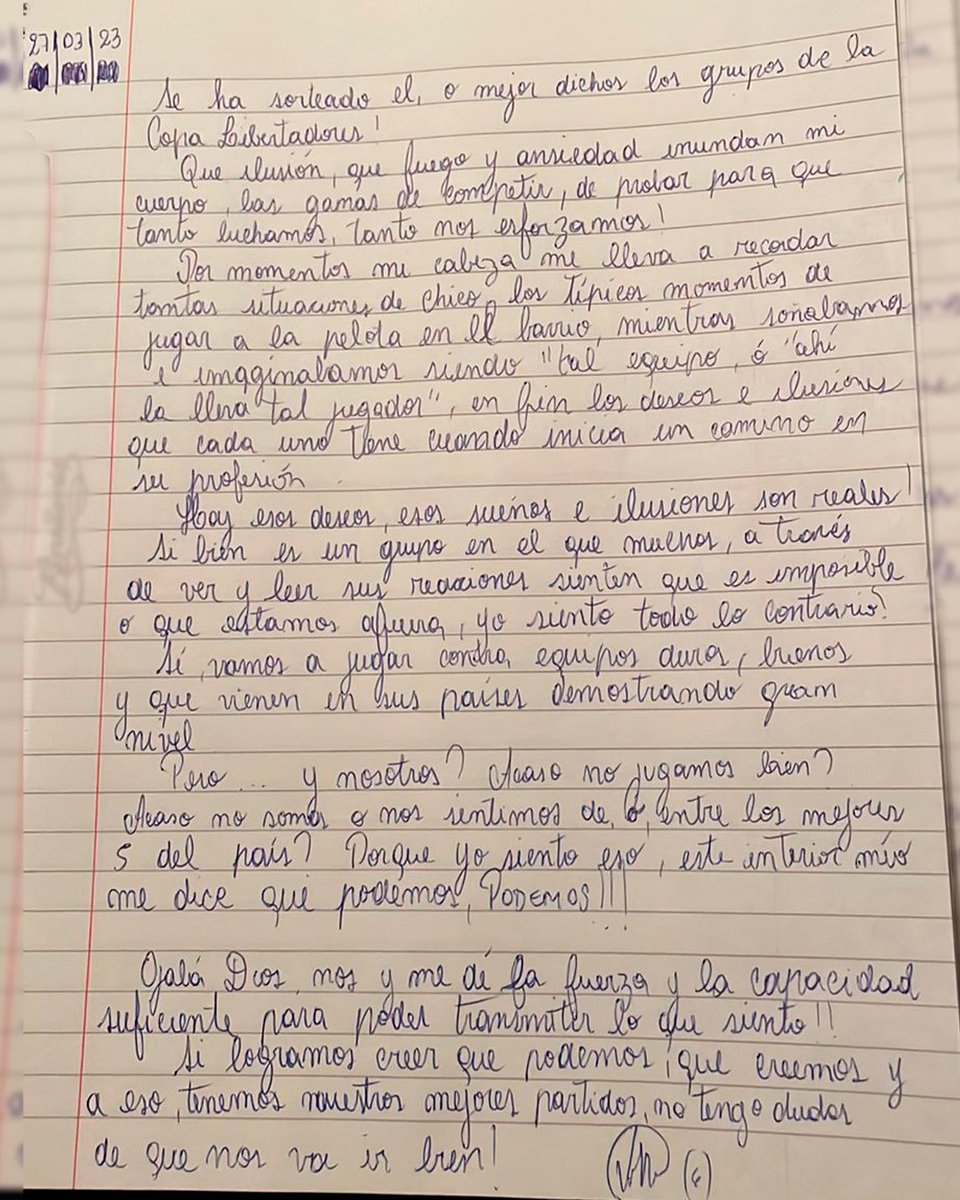 27|03|23
Se ha sorteado el, o mejor dichos los grupos de la
Copa Libertadores!
Que ilusión, que fuego y ansiedad inundan mi
cuerpo, las ganas de competir, de probar para que
tanto luchamos, tanto nos esforzamos!
Por momentos mi cabeza me lleva a recordar
tantas situaciones de chico, los típicos momentos de
jugar a la pelota en el barrio, mientras soñabamos
e imaginabamos siendo "tal equipo, ó "ahí
la lleva tal jugador", en fin los deseos e ilusiones
que cada uno tiene cuando inicia un camino en
su profesión.
Hoy esos deseos, esos sueños e ilusiones son reales!
Si bien es un grupo en el que muchos, a través
de ver y leer sus reacciones sienten que es imposible
o que estamos afuera, yo siento todo lo contrario?
Si, vamos a jugar contra equipos duros, buenos
y que vienen en sus países demostrando gran
nivel
Pero... y nosotros? Acaso no jugamos bien?
Acaso no somos o nos sentimos de, o, entre los mejores
5 del país? Porque yo siento eso, este interior mío
me dice que podemos, PODEMOS!!!
Ojalá Dios, nos y me dé la fuerza y la capacidad
suficiente para poder transmitir lo que siento!!
Si logramos creer que podemos, que creemos y
a eso, tenemos nuestros mejores partidos, no tengo dudas
de que nos va ir bien!
(6)